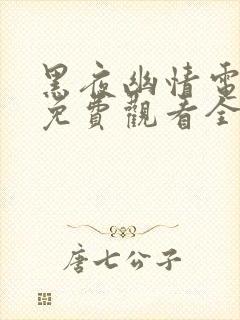 黑夜幽情電
免費觀看全
唐七公子